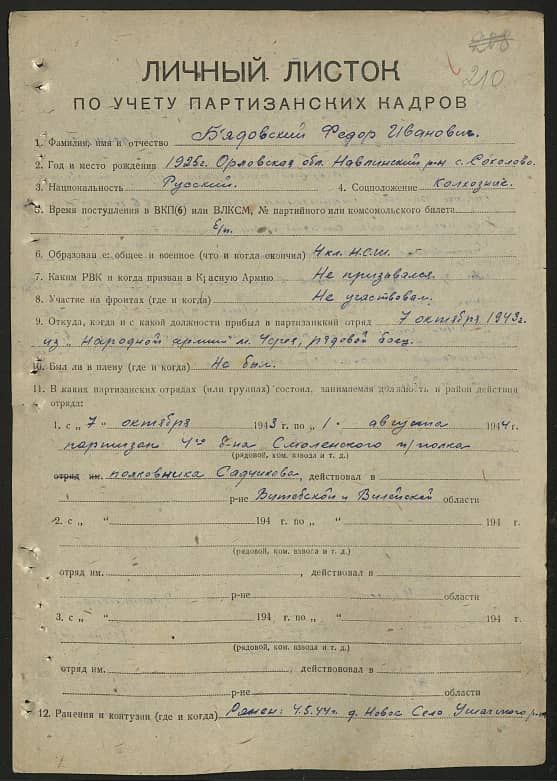 208
210
ЛИЧНЫЙ ЛИСТОК
ПО УЧЕТУ ПАРТИЗАНСКИХ КАДРОВ
1. Фамилия, имя и отчество Бядовский Федор Иванович.
2. Год и место рождения 1925г. Орловская обл. Навлинский р-н с. Соколово.
3. Национальность Русский. 4. Соцположение Колхозник.
5. Время поступления в ВКП(б) или ВЛКСМ, № партийного или комсомольского билета
Б/п.
6. Образование общее и военное (что и когда окончил) 4 кл. Н.С.Ш.
7. Каким РВК и когда призван в Красную Армию Не призывался.
8. Участие на фронтах (где и когда) Не участвовал.
9. Откуда, когда и с какой должности прибыл в партизанкий отряд 7 октября 1943г.
из „Народной армии" м. Черея, рядовой боец.
10. Был ли в плену (где и когда) Не был.
11. В каких партизанских отрядах (или группах) состоял, занимаемая должность и район действия
отряда:
1. с „ 7 " октября 1943 г. по „ 1 " августа 1944 г.
партизан 4го б-на Смоленского п/полка
(рядовой, ком. взвода и т. д.)
отряд им. полковника Садчикова, действовал в
р-не Витебской и Вилейской области
2. с „ " 194 г. по „ " 194 г.
(рядовой, ком. взвода и т. д.)
отряд им. , действовал в
р-не области
3. с „ " 194 г. по „ " 194 г.
(рядовой, ком. взвода и т. д.)
отряд им. действововал в
р-не области
12. Ранения и контузии (где и когда) Ранен: 4.5.44г. д. Новое Село Ушачского р-на